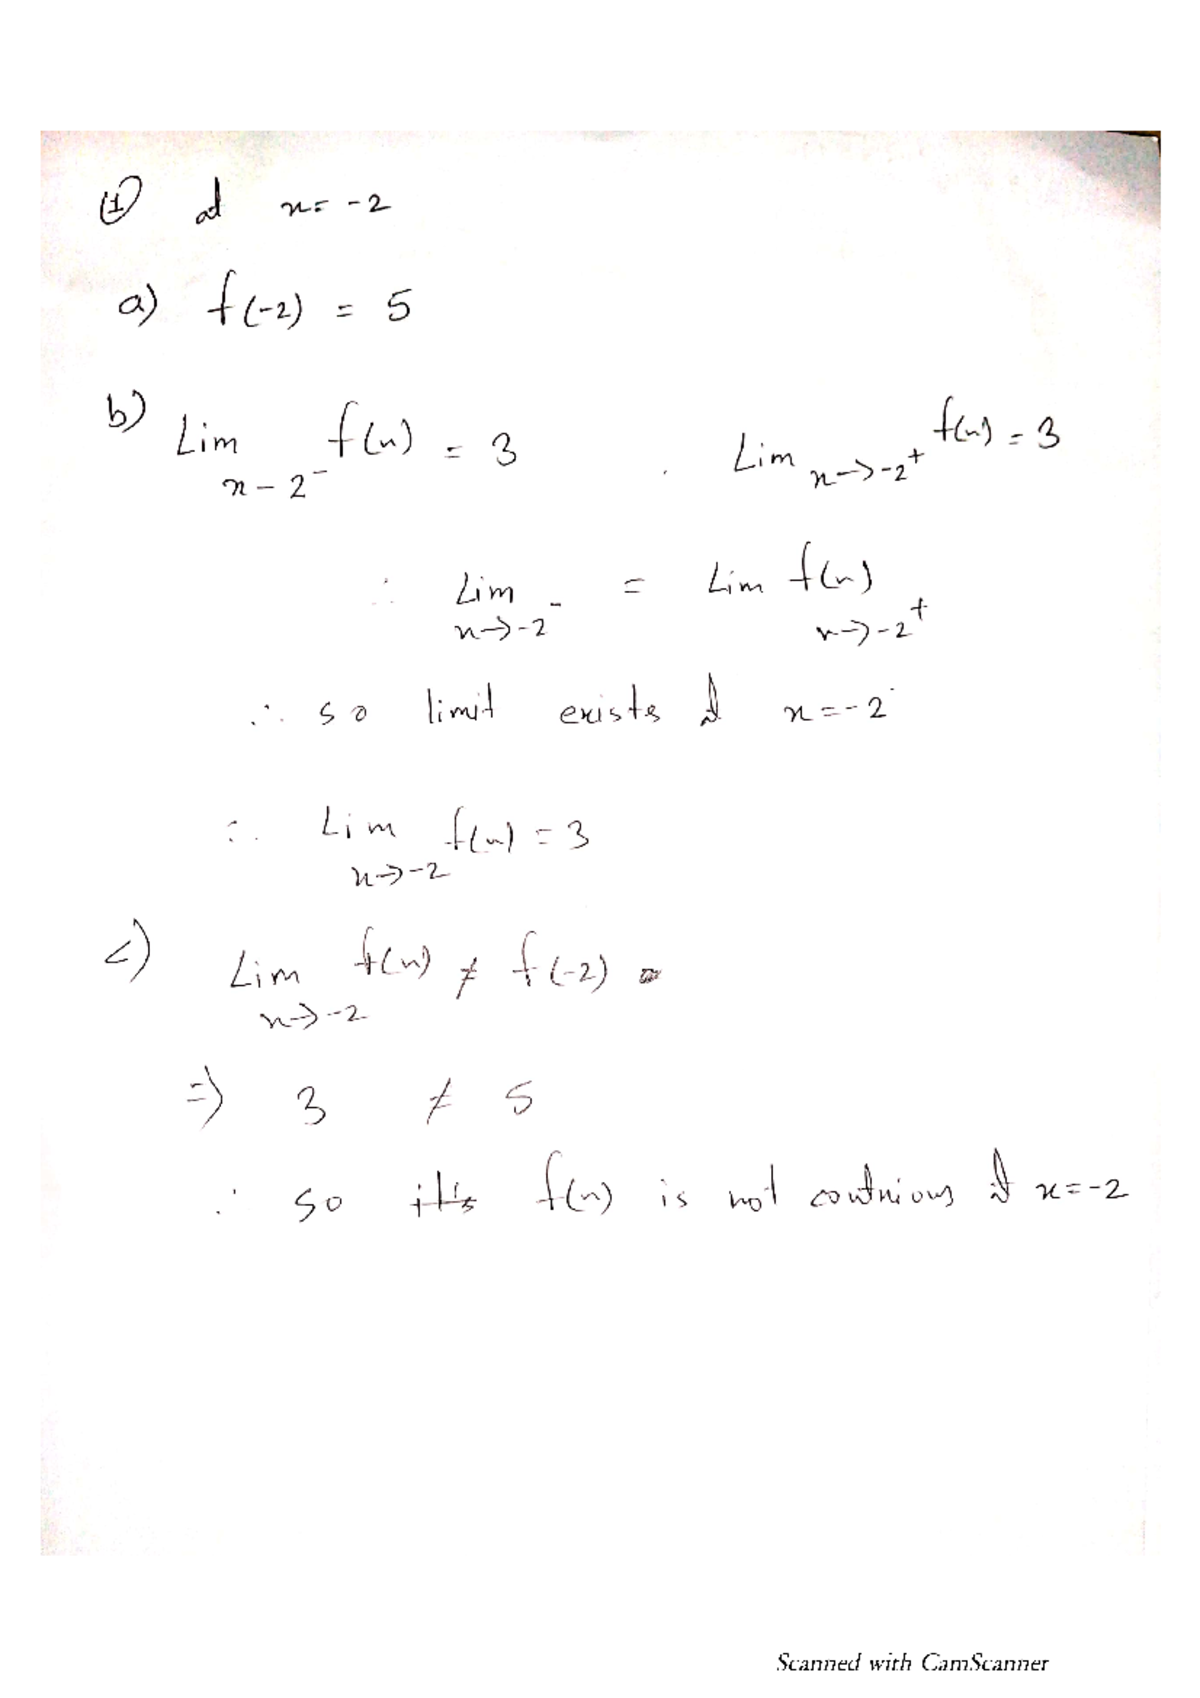 ① at x = -2
a) f(-2) = 5
b) Lim x - 2⁻ f(x) = 3 . Lim x→-2⁺ f(x) = 3
∴ Lim x→-2⁻ = Lim f(x) x→-2⁺
∴ so limit exists at x = -2
∴ Lim x→-2 f(x) = 3
c) Lim x→-2 f(x) ≠ f(-2)
⇒ 3 ≠ 5
∴ so it's f(x) is not contnious at x = -2
Scanned with CamScanner